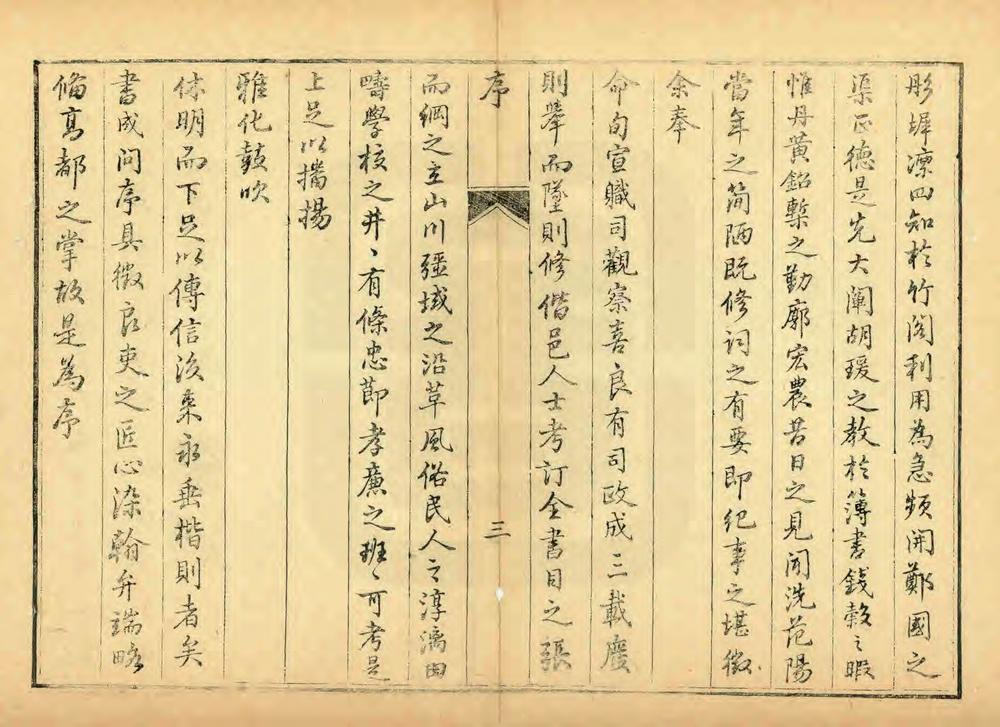 彤墀凛四知於竹閣利用為急頻開鄭國之
渠正德是先大闡胡瑗之教於簿書錢穀之暇
惟丹黃鉛槧之勤廓宏農昔日之見聞洗范陽
當年之簡陋既修詞之有要即紀事之堪徵
余奉
命旬宣職司觀察喜良有司政成三載廢
則舉而墜則修偕邑人士考訂全書目之張
序
三
而綱之立山川疆域之沿革風俗民人之淳漓田
疇學校之井々有條忠節孝廉之班々可考是
上足以揚
雅化鼓吹
休明而下足以傳信後來永垂楷則者矣
書成問序具徵良吏之匠心染翰弁端略
備高都之掌故是為序